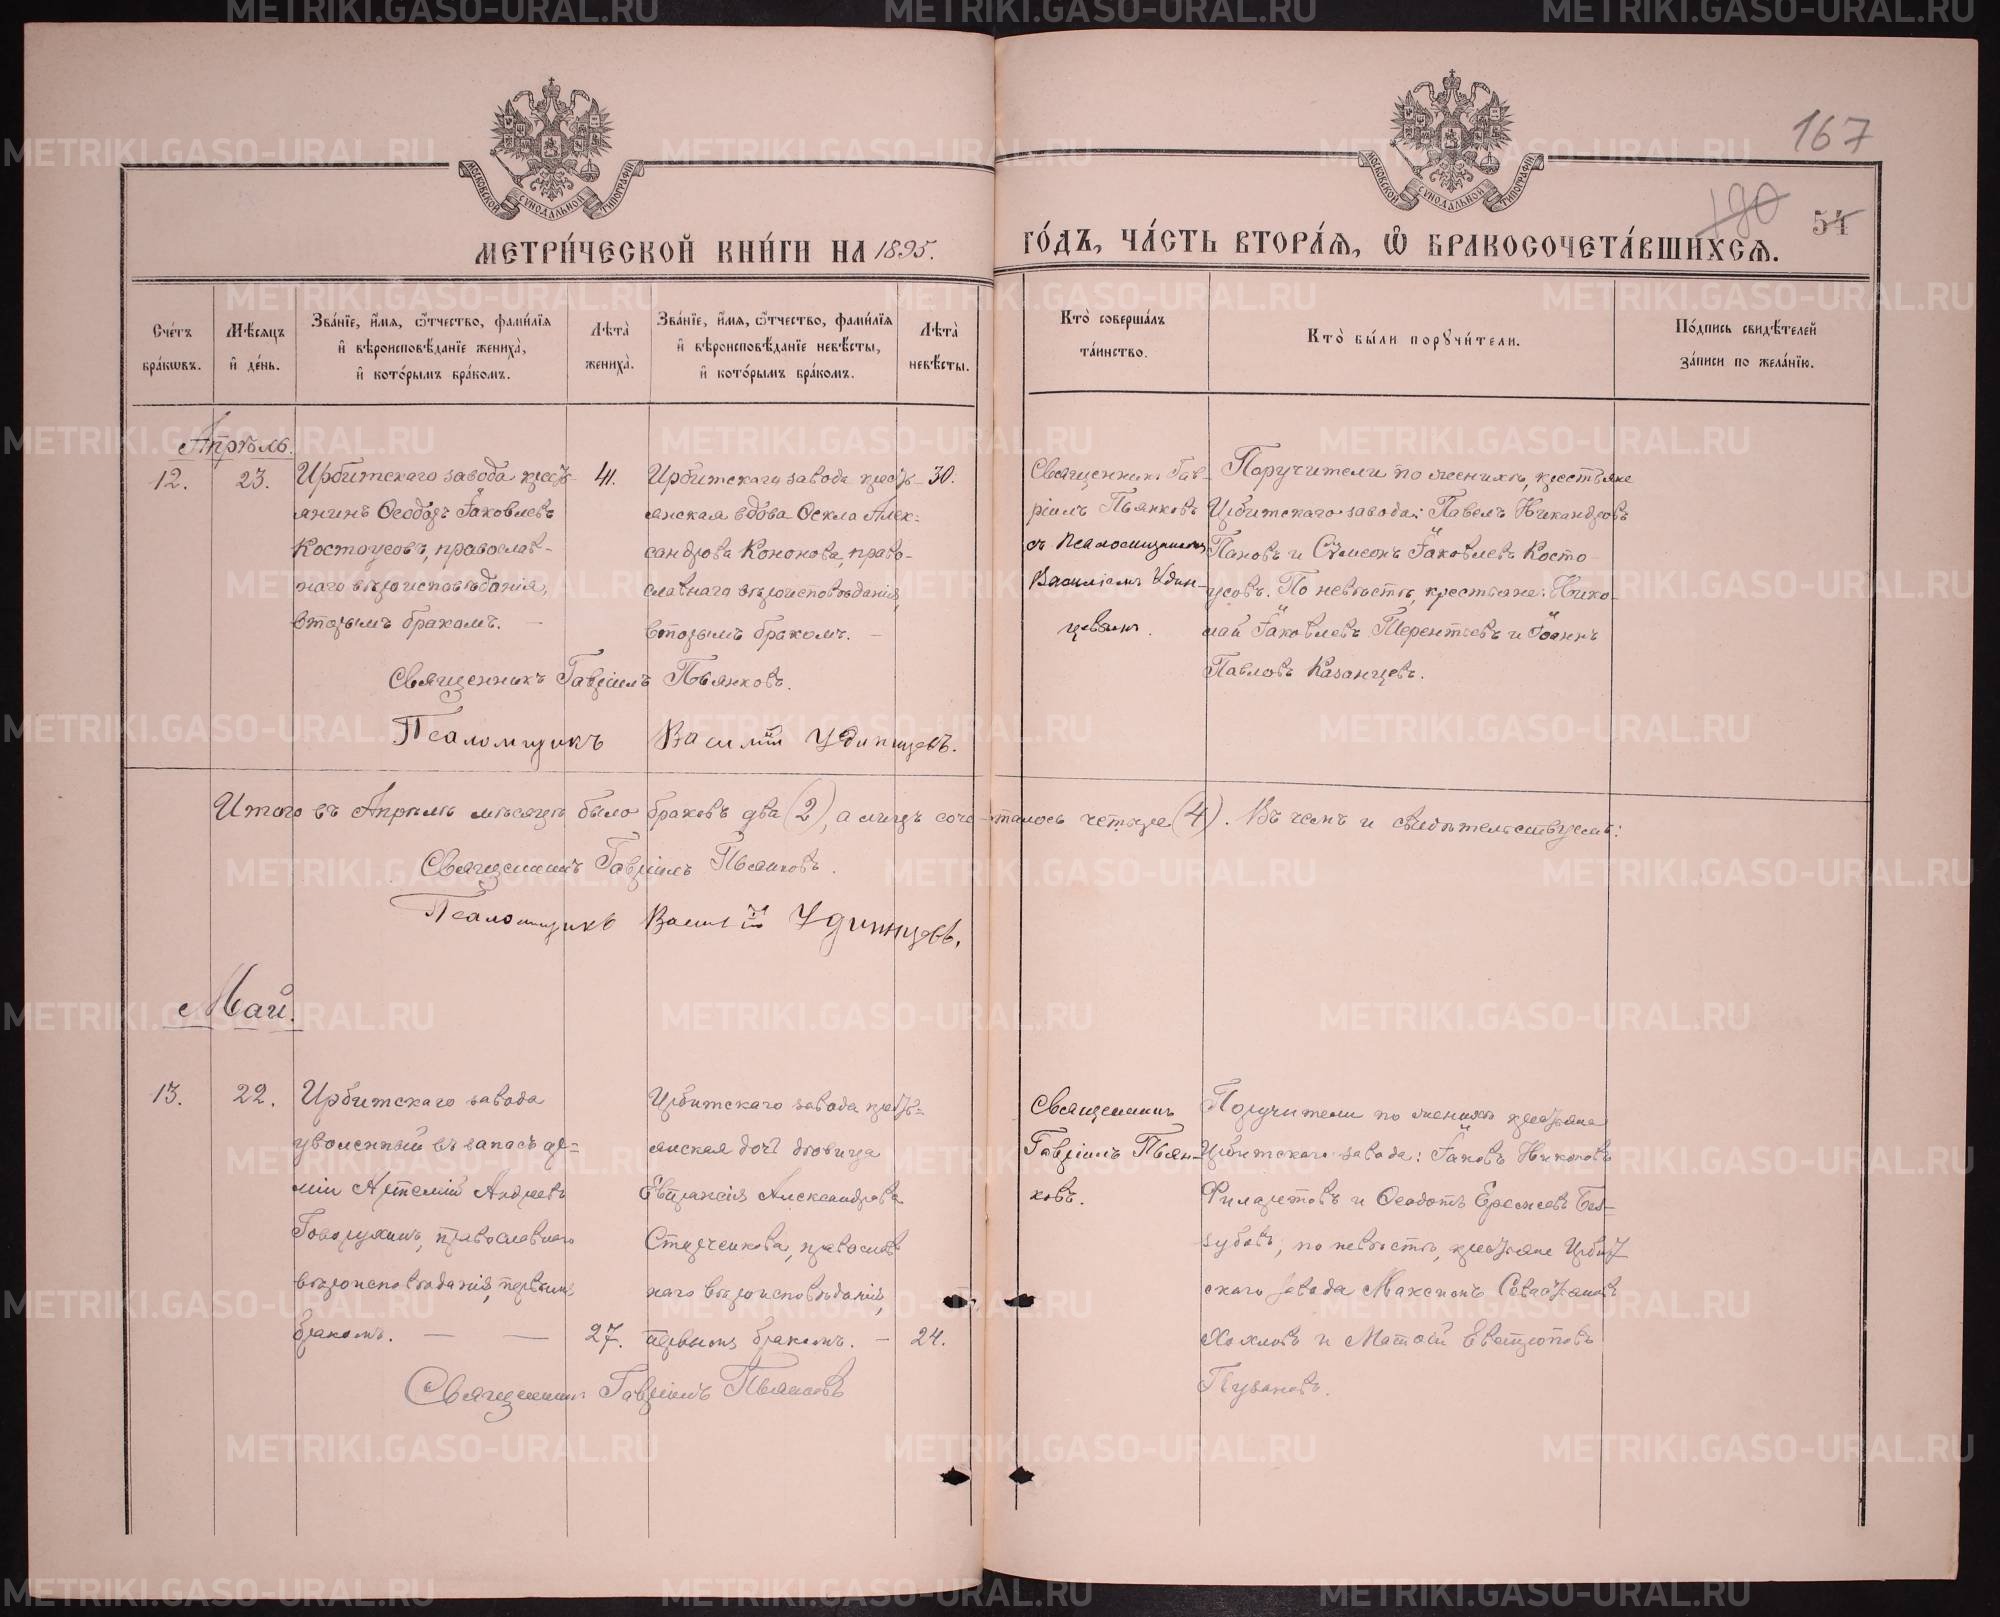 167
190
54
МОСКОВСКОЙ СѴНОДАЛЬНОЙ ТИПОГРАФІИ
МОСКОВСКОЙ СѴНОДАЛЬНОЙ ТИПОГРАФІИ
МЕТРИ́ЧЕСКОЙ КНИ́ГИ НА 1895.
ГО́ДЪ, ЧА́СТЬ ВТОРА́Ѧ, Ѡ҆ БРАКОСОЧЕТА́ВШИХСѦ.
Сче́тъ бра́кѡвъ.
Мѣ́сѧцъ и҆ де́нь.
Зва́нїе, и҆́мѧ, ѻ҆́тчество, фами́лїѧ и҆ вѣроисповѣ́данїе жениха̀, и҆ кото́рымъ бра́комъ.
Лѣ́та̀ жениха̀.
Зва́нїе, и҆́мѧ, ѻ҆́тчество, фами́лїѧ и҆ вѣроисповѣ́данїе невѣ́сты, и҆ кото́рымъ бра́комъ.
Лѣ́та̀ невѣ́сты.
Кто̀ соверша́лъ та́инство.
Кто̀ бы́ли порꙋчи́тели.
По́дпись свидѣ́телей за́писи по жела́нїю.
Апрѣль.
12.
23.
Ирбитскаго завода кресть-
янинъ Ѳеодоръ Яковлевъ
Костоусовъ, православ-
наго вѣроисповѣданія,
вторымъ бракомъ. —
41.
Ирбитскаго завода кресть-
янская вдова Ѳекла Алек-
сандрова Кононова, право-
славнаго вѣроисповѣданія,
вторымъ бракомъ. —
30.
Священникъ Гав-
ріилъ Пьянковъ
съ псаломщикомъ
Василіемъ Удин-
цевымъ.
Поручители по женихѣ, крестьяне
Ирбитскаго завода: Павелъ Никандровъ
Пановъ и Сѵмеонъ Яковлевъ Косто-
усовъ. По невѣстѣ, крестьяне: Нико-
лай Яковлевъ Терентьевъ и Іоаннъ
Павловъ Казанцевъ.
Священникъ Гавріилъ Пьянковъ.
Псаломщикъ Василій Удинцевъ.
Итого въ Апрѣлѣ мѣсяцѣ было браковъ два (2), а лицъ сочеталось четыре (4). Въ чемъ и свидѣтельствуемъ:
Священникъ Гавріилъ Пьянковъ.
Псаломщикъ Василій Удинцевъ.
Май.
13.
22.
Ирбитскаго завода
уволенный въ запасъ ар-
міи Артемій Андреевъ
Говорухинъ, православнаго
вѣроисповѣданія, первымъ
бракомъ. — —
27.
Ирбитскаго завода кресть-
янская дочь дѣвица
Евпраксія Александрова
Струченкова, православ
наго вѣроисповѣданія,
первымъ бракомъ. —
24.
Священникъ
Гавріилъ Пьян-
ковъ.
Поручители по женихѣ крестьяне
Ирбитскаго завода: Яковъ Никоновъ
Филаретовъ и Ѳеодотъ Еремеевъ Без-
зубовъ, по невѣстѣ, крестьяне Ирбит
скаго завода Максимъ Севастьяновъ
Хохловъ и Матѳій Евстроповъ
Пузановъ.
Священникъ Гавріилъ Пьянковъ
METRIKI.GASO-URAL.RU